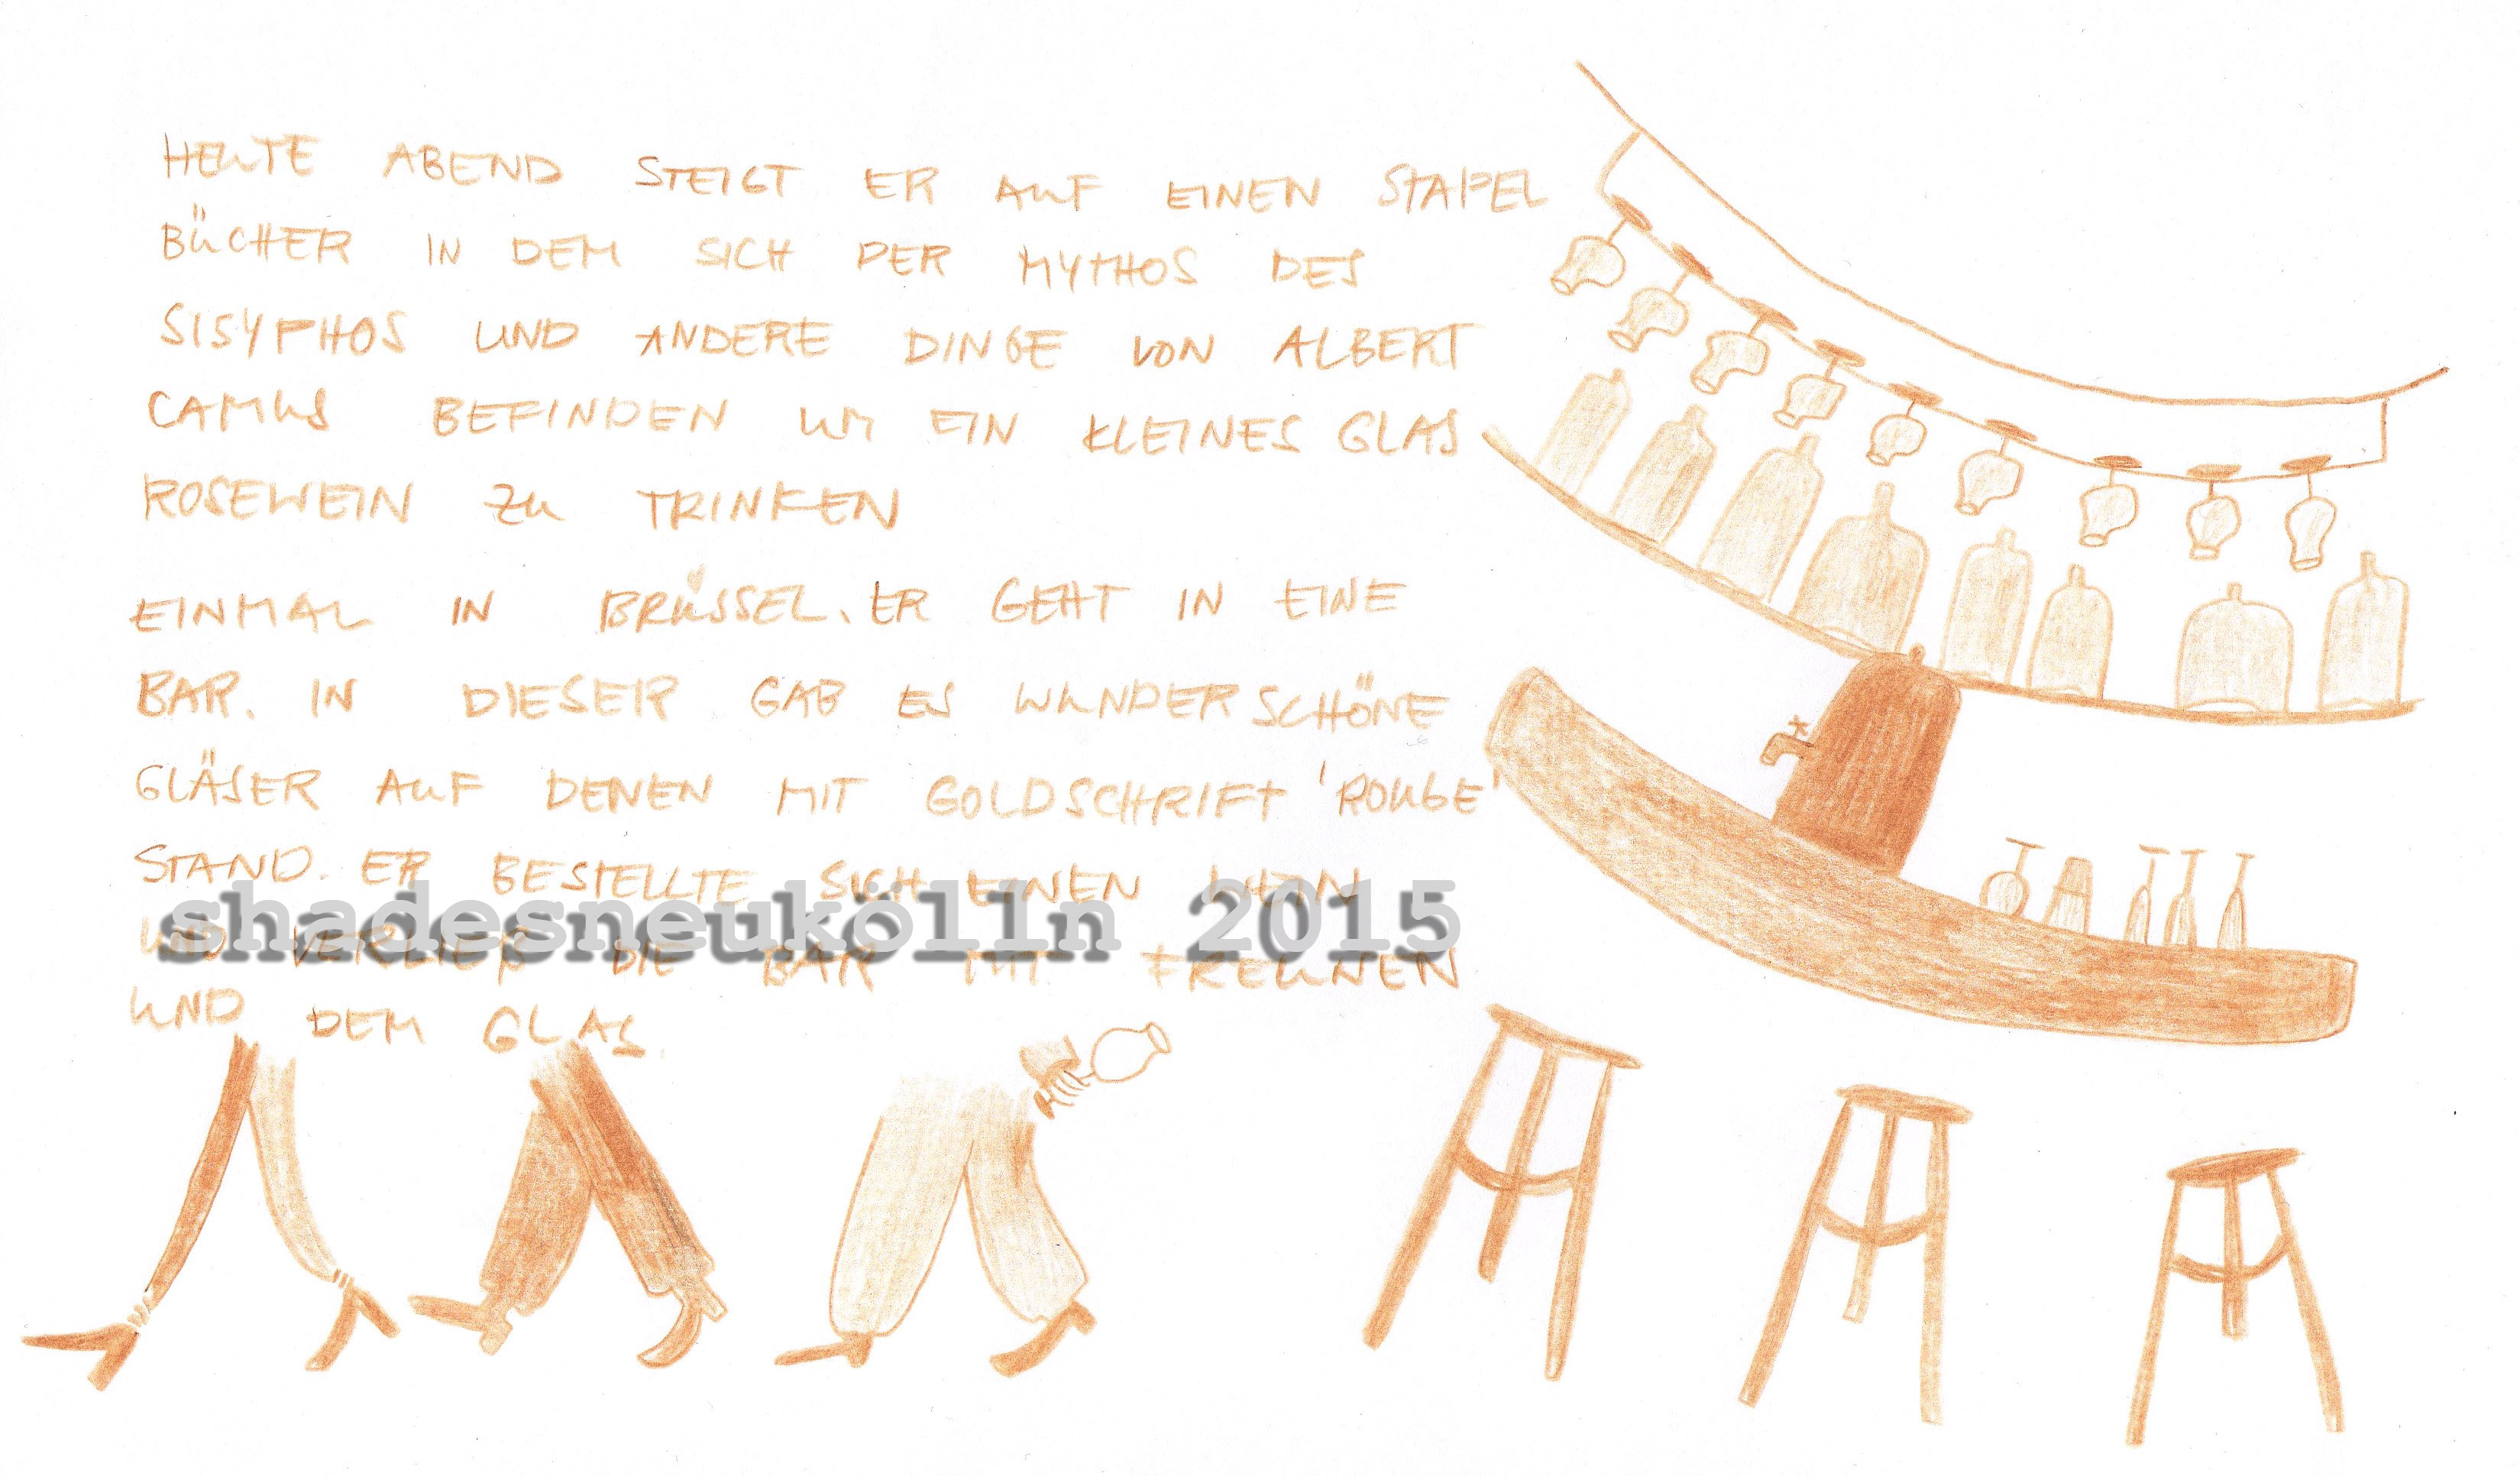 HEUTE ABEND STEIGT ER AUF EINEN STAPEL
BÜCHER IN DEM SICH DER MYTHOS DES
SISYPHOS UND ANDERE DINGE VON ALBERT
CAMUS BEFINDEN UM EIN KLEINES GLAS
ROSEWEIN ZU TRINKEN
EINMAL IN BRÜSSEL. ER GEHT IN EINE
BAR. IN DIESER GAB ES WUNDERSCHÖNE
GLÄSER AUF DENEN MIT GOLDSCHRIFT 'ROUGE'
STAND. ER BESTELLTE SICH EINEN WEIN
shadesneukölln 2015
UND VERLIEß DIE BAR MIT FREUNEN
UND DEM GLAS.